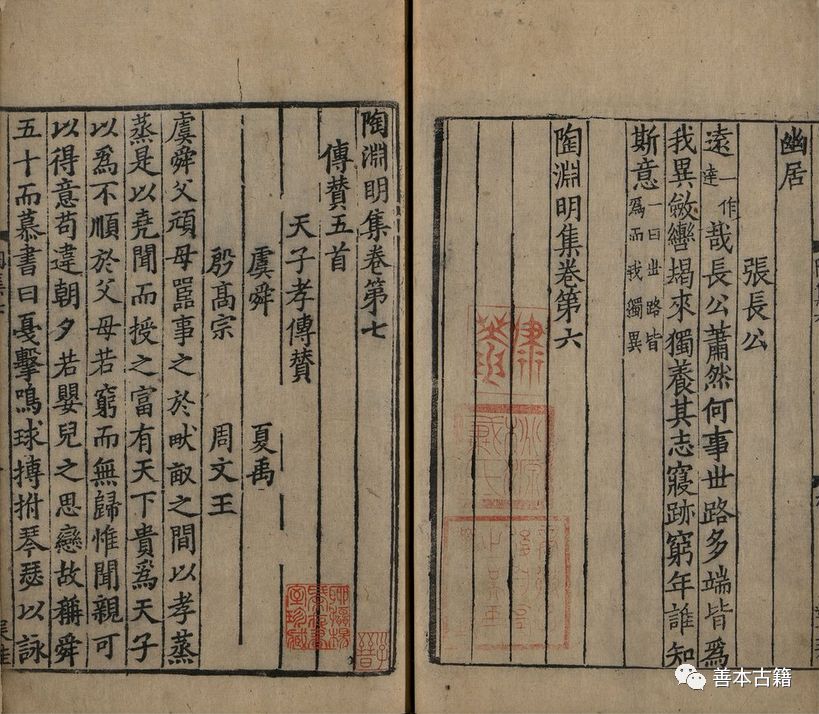 幽居
張長公
遠一作達哉長公蕭然何事世路多端皆爲
我異斂轡朅來獨養其志寢跡窮年誰知
斯意一曰世路皆爲而我獨異
陶淵明集卷第六
陶淵明集卷第七
傳賛五首
天子孝傳賛
虞舜 夏禹
殷高宗 周文王
虞舜父頑母嚚事之於畎畝之間以孝蒸
蒸是以堯聞而授之富有天下貴爲天子
以爲不順於父母若窮而無歸惟聞親可
以得意苟違朝夕若嬰兒之思戀故稱舜
五十而慕書曰戞擊鳴球搏拊琴瑟以詠
善本古籍